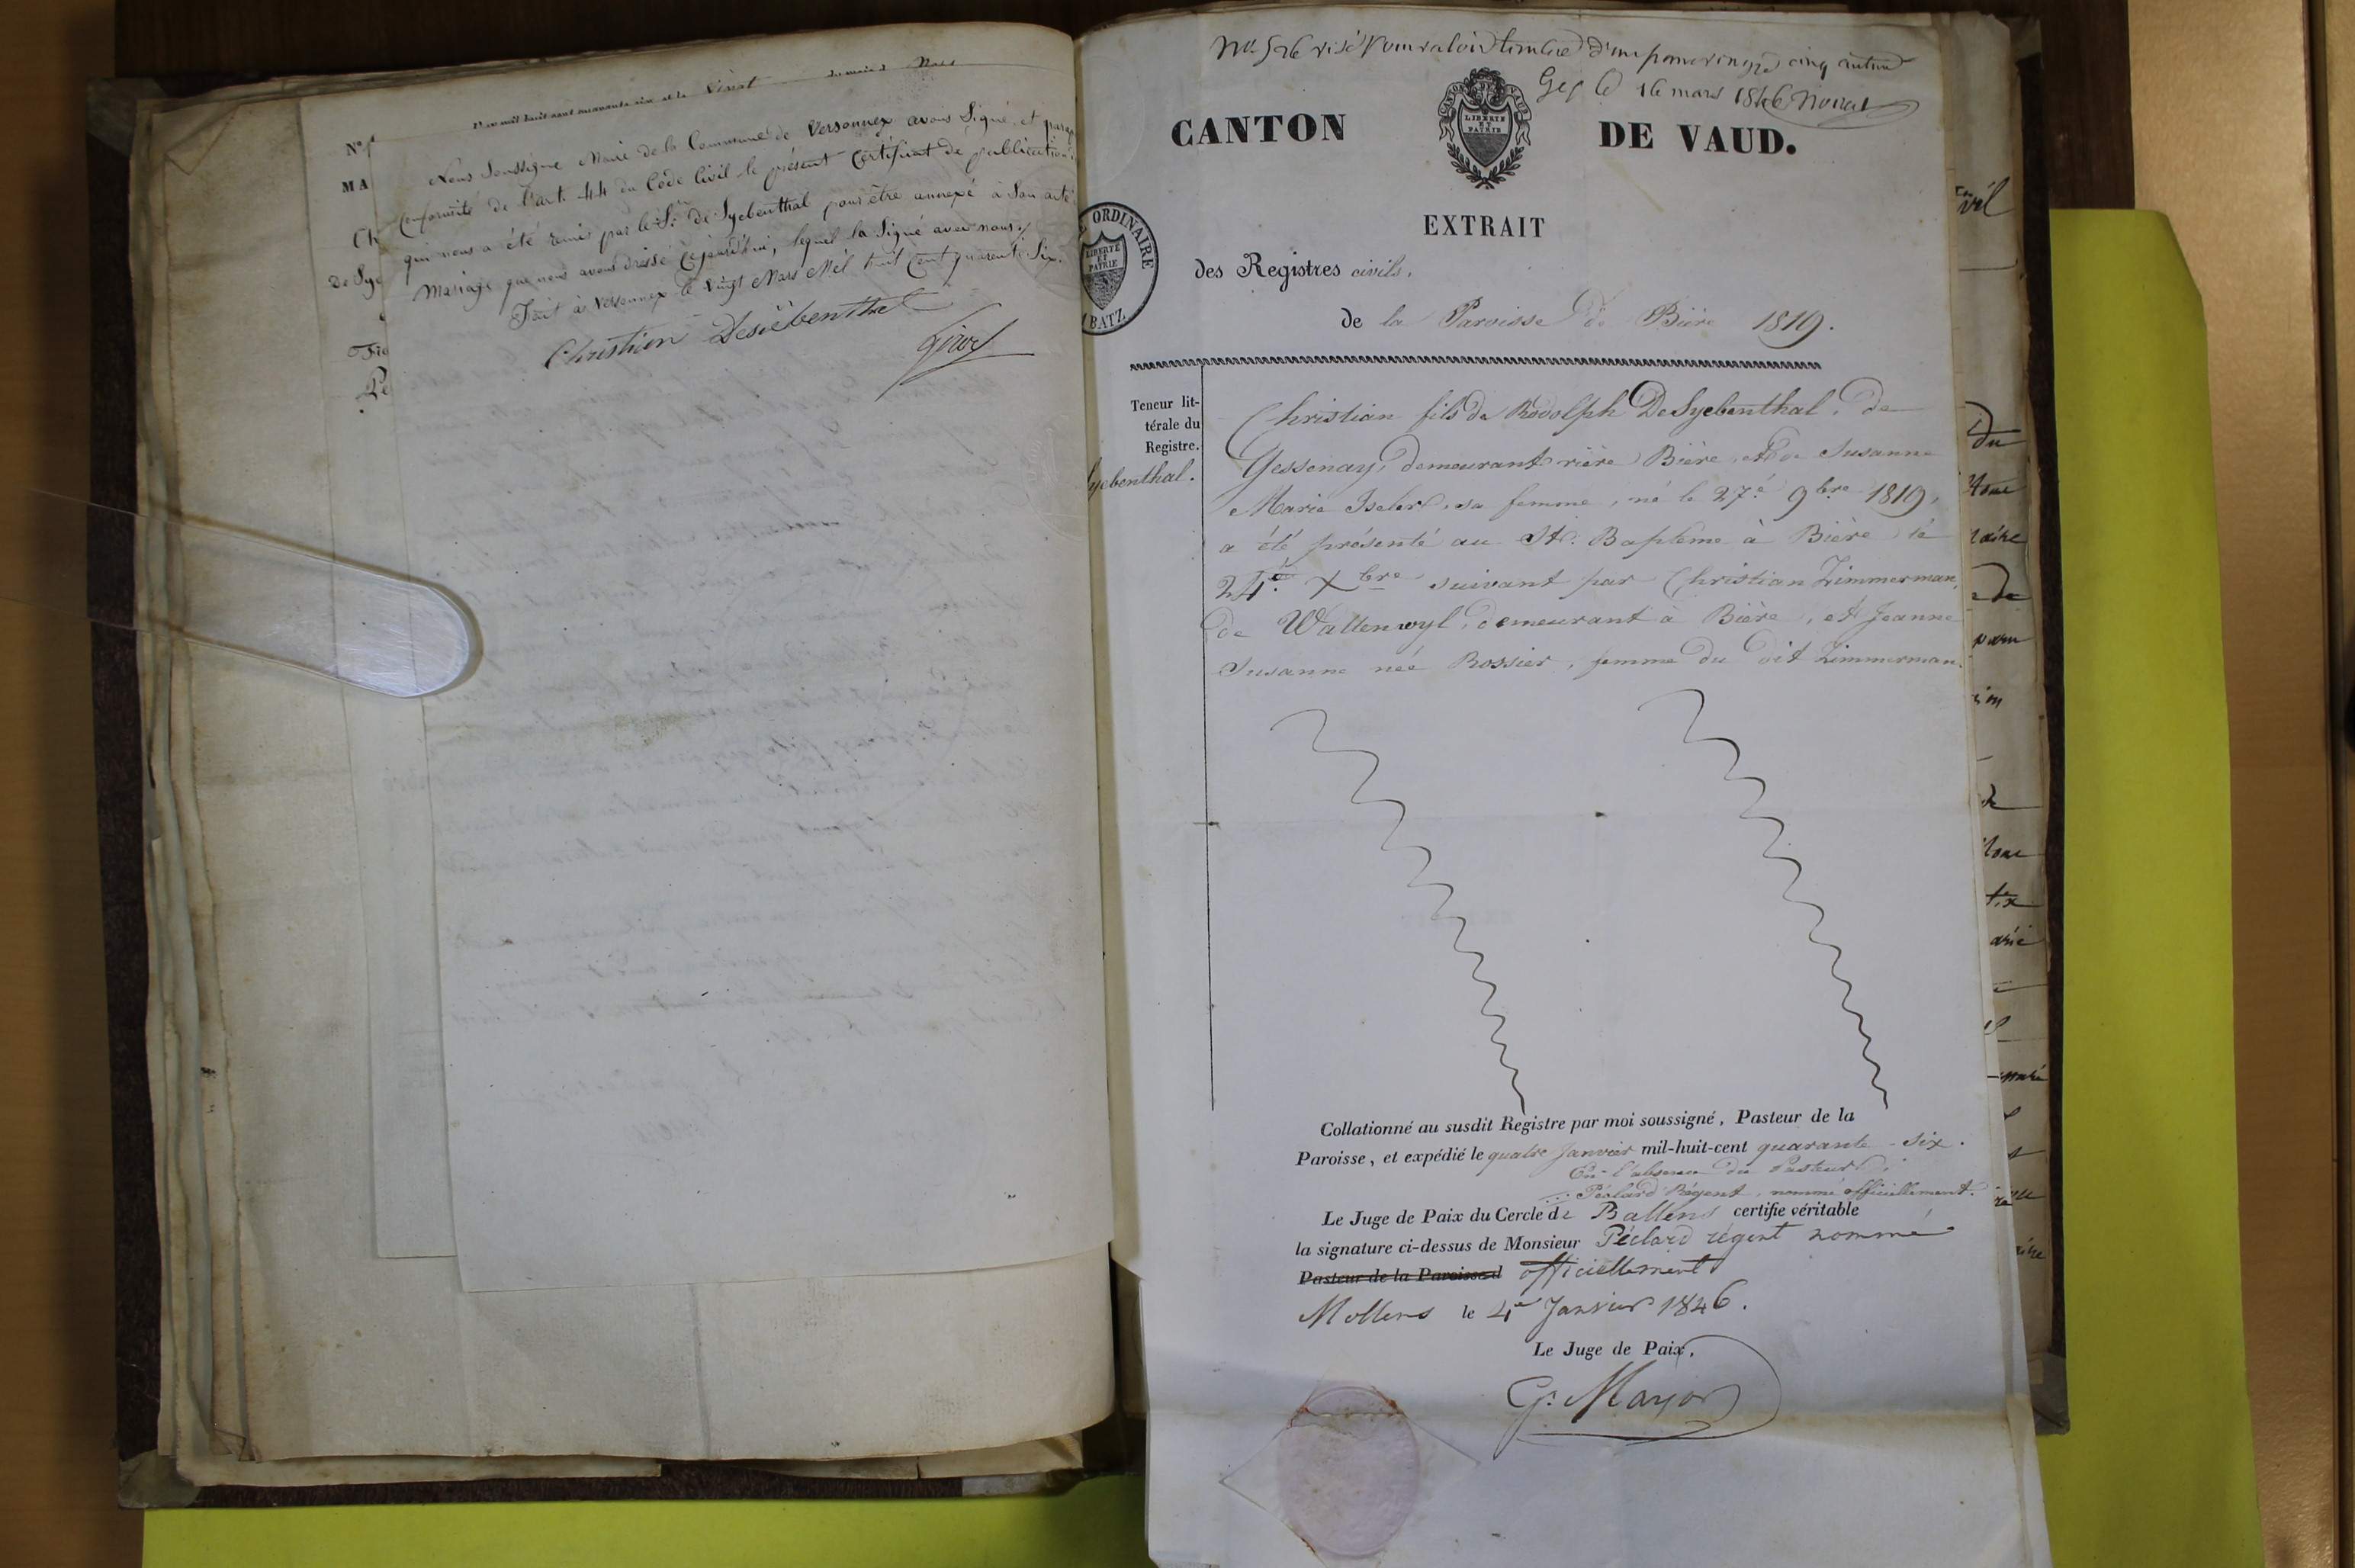 L'an mil huit cent quarante six et le Vingt du mois de Mars
N°
MA
Ch
de Sye
Nous Soussigné Maire de la Commune de Versonnex avons Signé, et parap
Conformité de l'art. 44 du Code Civil le présent Certificat de publication
qui nous a été remis par le Sr. de Syebenthal pour être annexé à Son acte
Mariage que nous avons dressé Cejourd'hui, lequel la Signé avec nous
Fait à Versonnex le Vingt Mars Mil huit Cent quarante Six.
Christian Desiebenthal
N° 526 visé Pour valoir timbre d'un franc vingt cinq
Gex le 16 mars 1846
CANTON DE VAUD.
CANTON DE VAUD
LIBERTÉ ET PATRIE
EXTRAIT
ORDINAIRE
LIBERTE ET PATRIE
BATZ
des Registres civils.
de la Paroisse de Bière 1819.
Teneur lit-
térale du
Registre.
yebenthal.
Christian fils de Rodolph DeSyebenthal, de
Gessenay, demeurant rière Bière, et de Susanne
Marie Iseler, sa femme, né le 27.e 9bre 1819,
a été présenté au St. Baptême à Bière le
24.e Xbre suivant par Christian Zimmerman,
de Wattenwyl, demeurant à Bière, et Jeanne
Susanne née Rossier, femme du dit Zimmerman.
Collationné au susdit Registre par moi soussigné, Pasteur de la
Paroisse, et expédié le quatre Janvier mil-huit-cent quarante-six.
En l'absence du Pasteur
Péclard Régent, nommé officiellement.
Le Juge de Paix du Cercle de Ballens certifie véritable
la signature ci-dessus de Monsieur Péclard régent nommé
Pasteur de la Paroisse d officiellement
Mollens le 4e Janvier 1846.
Le Juge de Paix,
G. Mayor